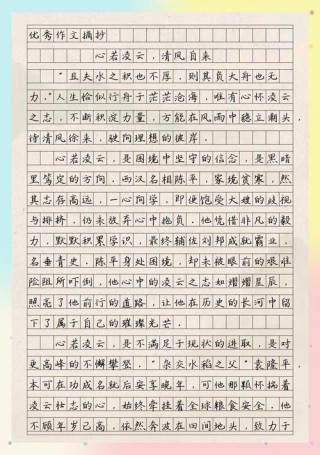 优秀作文摘抄
心若凌云，清风自来
“且夫水之积也不厚，则其负大舟也无
力。”人生恰似行舟于茫茫沧海，唯有心怀凌云
之志，不断积淀力量，方能在风雨中稳立翻头，
待清风徐来，驶向理想的彼岸。
心若凌云，是困境中坚守的信念，是黑暗
里笃定的方向。西汉名相陈平，家境贫寒，然
其志存高远，一心向学，即便饱受大嫂的歧视
与排挤，仍未放弃心中抱负。他凭借非凡的毅
力，默默积累学识，最终辅佐刘邦成就霸业，
名垂青史。陈平身处困境，却未被眼前的艰难
险阻所吓倒，他心中的凌云之志如熠熠星辰，
照亮了他前行的道路，让他在历史的长河中留
下了属于自己的璀璨光芒。
心若凌云，是不满足于现状的进取，是对
更高峰的不懈攀登。“杂交水稻之父”袁隆平
本可在功成名就后安享晚年，可他那颗怀揣着
凌云壮志的心，始终牵挂着全球粮食安全。他
不顾年岁已高，依然奔波在田间地头，致力于